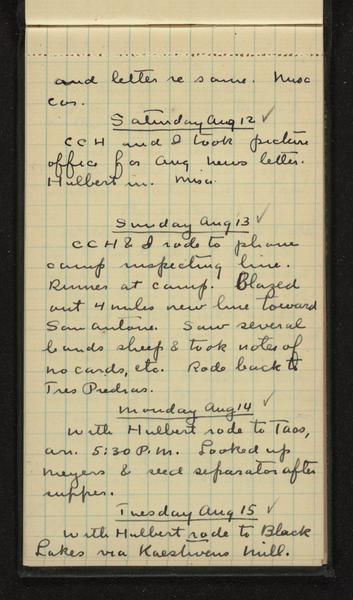 and letter re same. Misc
cor.
Saturday Aug 12 ✓
CCH and I took picture
office for Aug news letter.
Hulbert in. Misc.
Sunday Aug 13 ✓
CCH & I rode to phone
camp inspecting line.
Runner at camp. Blazed
out 4 miles new line toward
San Antone. Saw several
bands sheep & took notes of
no cards, etc. Rode back to
Tres Piedras.
Monday Aug 14 ✓
With Hulbert rode to Taos,
arr. 5:30 P.M. Looked up
Meyers & seed separator after
supper.
Tuesday Aug 15 ✓
With Hulbert rode to Black
Lakes via mill.